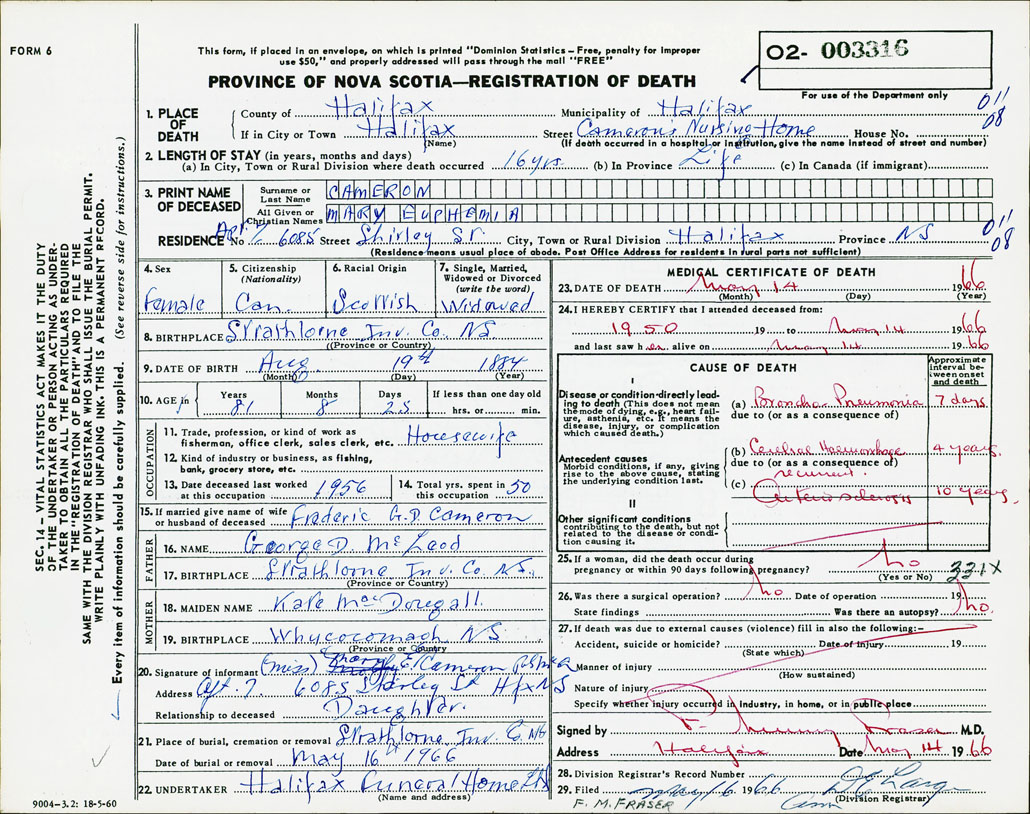 FORM 6
This form, if placed in an envelope, on which is printed "Dominion Statistics – Free, penalty for improper
use $50," and properly addressed will pass through the mail "FREE"
O2- 003316
PROVINCE OF NOVA SCOTIA—REGISTRATION OF DEATH
For use of the Department only
SEC. 14 – VITAL STATISTICS ACT MAKES IT THE DUTY
OF THE UNDERTAKER OR PERSON ACTING AS UNDER-
TAKER TO OBTAIN ALL THE PARTICULARS REQUIRED
IN THE "REGISTRATION OF DEATH" AND TO FILE THE
SAME WITH THE DIVISION REGISTRAR WHO SHALL ISSUE THE BURIAL PERMIT.
WRITE PLAINLY WITH UNFADING INK. THIS IS A PERMANENT RECORD.
Every item of information should be carefully supplied. (See reverse side for instructions.)
1. PLACE OF DEATH
County of Halifax Municipality of Halifax 011 08
If in City or Town Halifax Street Cameron's Nursing Home House No.
(Name) (If death occurred in a hospital or institution, give the name instead of street and number)
2. LENGTH OF STAY (in years, months and days)
(a) In City, Town or Rural Division where death occurred 16 yrs. (b) In Province Life (c) In Canada (if immigrant)
3. PRINT NAME OF DECEASED
Surname or Last Name CAMERON
All Given or Christian Names MARY EUPHEMIA
RESIDENCE Apt 7 No 6085 Street Shirley St. City, Town or Rural Division Halifax Province NS 011 08
(Residence means usual place of abode. Post Office Address for residents in rural parts not sufficient)
4. Sex Female
5. Citizenship (Nationality) Can.
6. Racial Origin Scottish
7. Single, Married, Widowed or Divorced (write the word) Widowed
8. BIRTHPLACE Strathlorne Inv. Co. NS
(Province or Country)
9. DATE OF BIRTH Aug 19th 1884
(Month) (Day) (Year)
10. AGE in Years 81 Months 8 Days 25 If less than one day old hrs. or min.
OCCUPATION
11. Trade, profession, or kind of work as
fisherman, office clerk, sales clerk, etc. Housewife
12. Kind of industry or business, as fishing,
bank, grocery store, etc.
13. Date deceased last worked at this occupation 1956
14. Total yrs. spent in this occupation 50
15. If married give name of wife
or husband of deceased Frederic G.D. Cameron
FATHER
16. NAME George D. McLeod
17. BIRTHPLACE Strathlorne Inv. Co. NS.
(Province or Country)
MOTHER
18. MAIDEN NAME Kate MacDougall
19. BIRTHPLACE Whycocomagh NS
(Province or Country
20. Signature of informant (Miss) E. Cameron
Address Apt. 7 6085 Shirley St Hfx NS
Relationship to deceased Daughter.
21. Place of burial, cremation or removal Strathlorne Inv. Co. NS
Date of burial or removal May 16th 1966
22. UNDERTAKER Halifax Funeral Home
(Name and address)
9004–3.2: 18-5-60
MEDICAL CERTIFICATE OF DEATH
23. DATE OF DEATH May 14 1966
(Month) (Day) (Year)
24. I HEREBY CERTIFY that I attended deceased from:
1950 19 to May 14 1966
and last saw her alive on May 14 1966
CAUSE OF DEATH
Approximate interval between onset and death
I
Disease or condition directly lead-
ing to death (This does not mean
the mode of dying, e.g., heart fail-
ure, asthenia, etc. It means the
disease, injury, or complication
which caused death.)
(a) Broncho Pneumonia 7 days
due to (or as a consequence of)
Antecedent causes
Morbid conditions, if any, giving
rise to the above cause, stating
the underlying condition last.
(b) Cerebral Haemorrhage 4 years
due to (or as a consequence of)
recurrent
(c) Arteriosclerosis 10 years
II
Other significant conditions
contributing to the death, but not
related to the disease or condi-
tion causing it.
25. If a woman, did the death occur during
pregnancy or within 90 days following pregnancy? no 331X
(Yes or No)
26. Was there a surgical operation? no Date of operation 19
State findings Was there an autopsy? no.
27. If death was due to external causes (violence) fill in also the following:–
Accident, suicide or homicide? Date of injury 19
(State which)
Manner of injury
(How sustained)
Nature of injury
Specify whether injury occurred in industry, in home, or in public place
Signed by F. Murray Fraser M.D.
Address Halifax Date May 14 1966
28. Division Registrar's Record Number
29. Filed May 16 1966
(Division Registrar)
F. M. FRASER